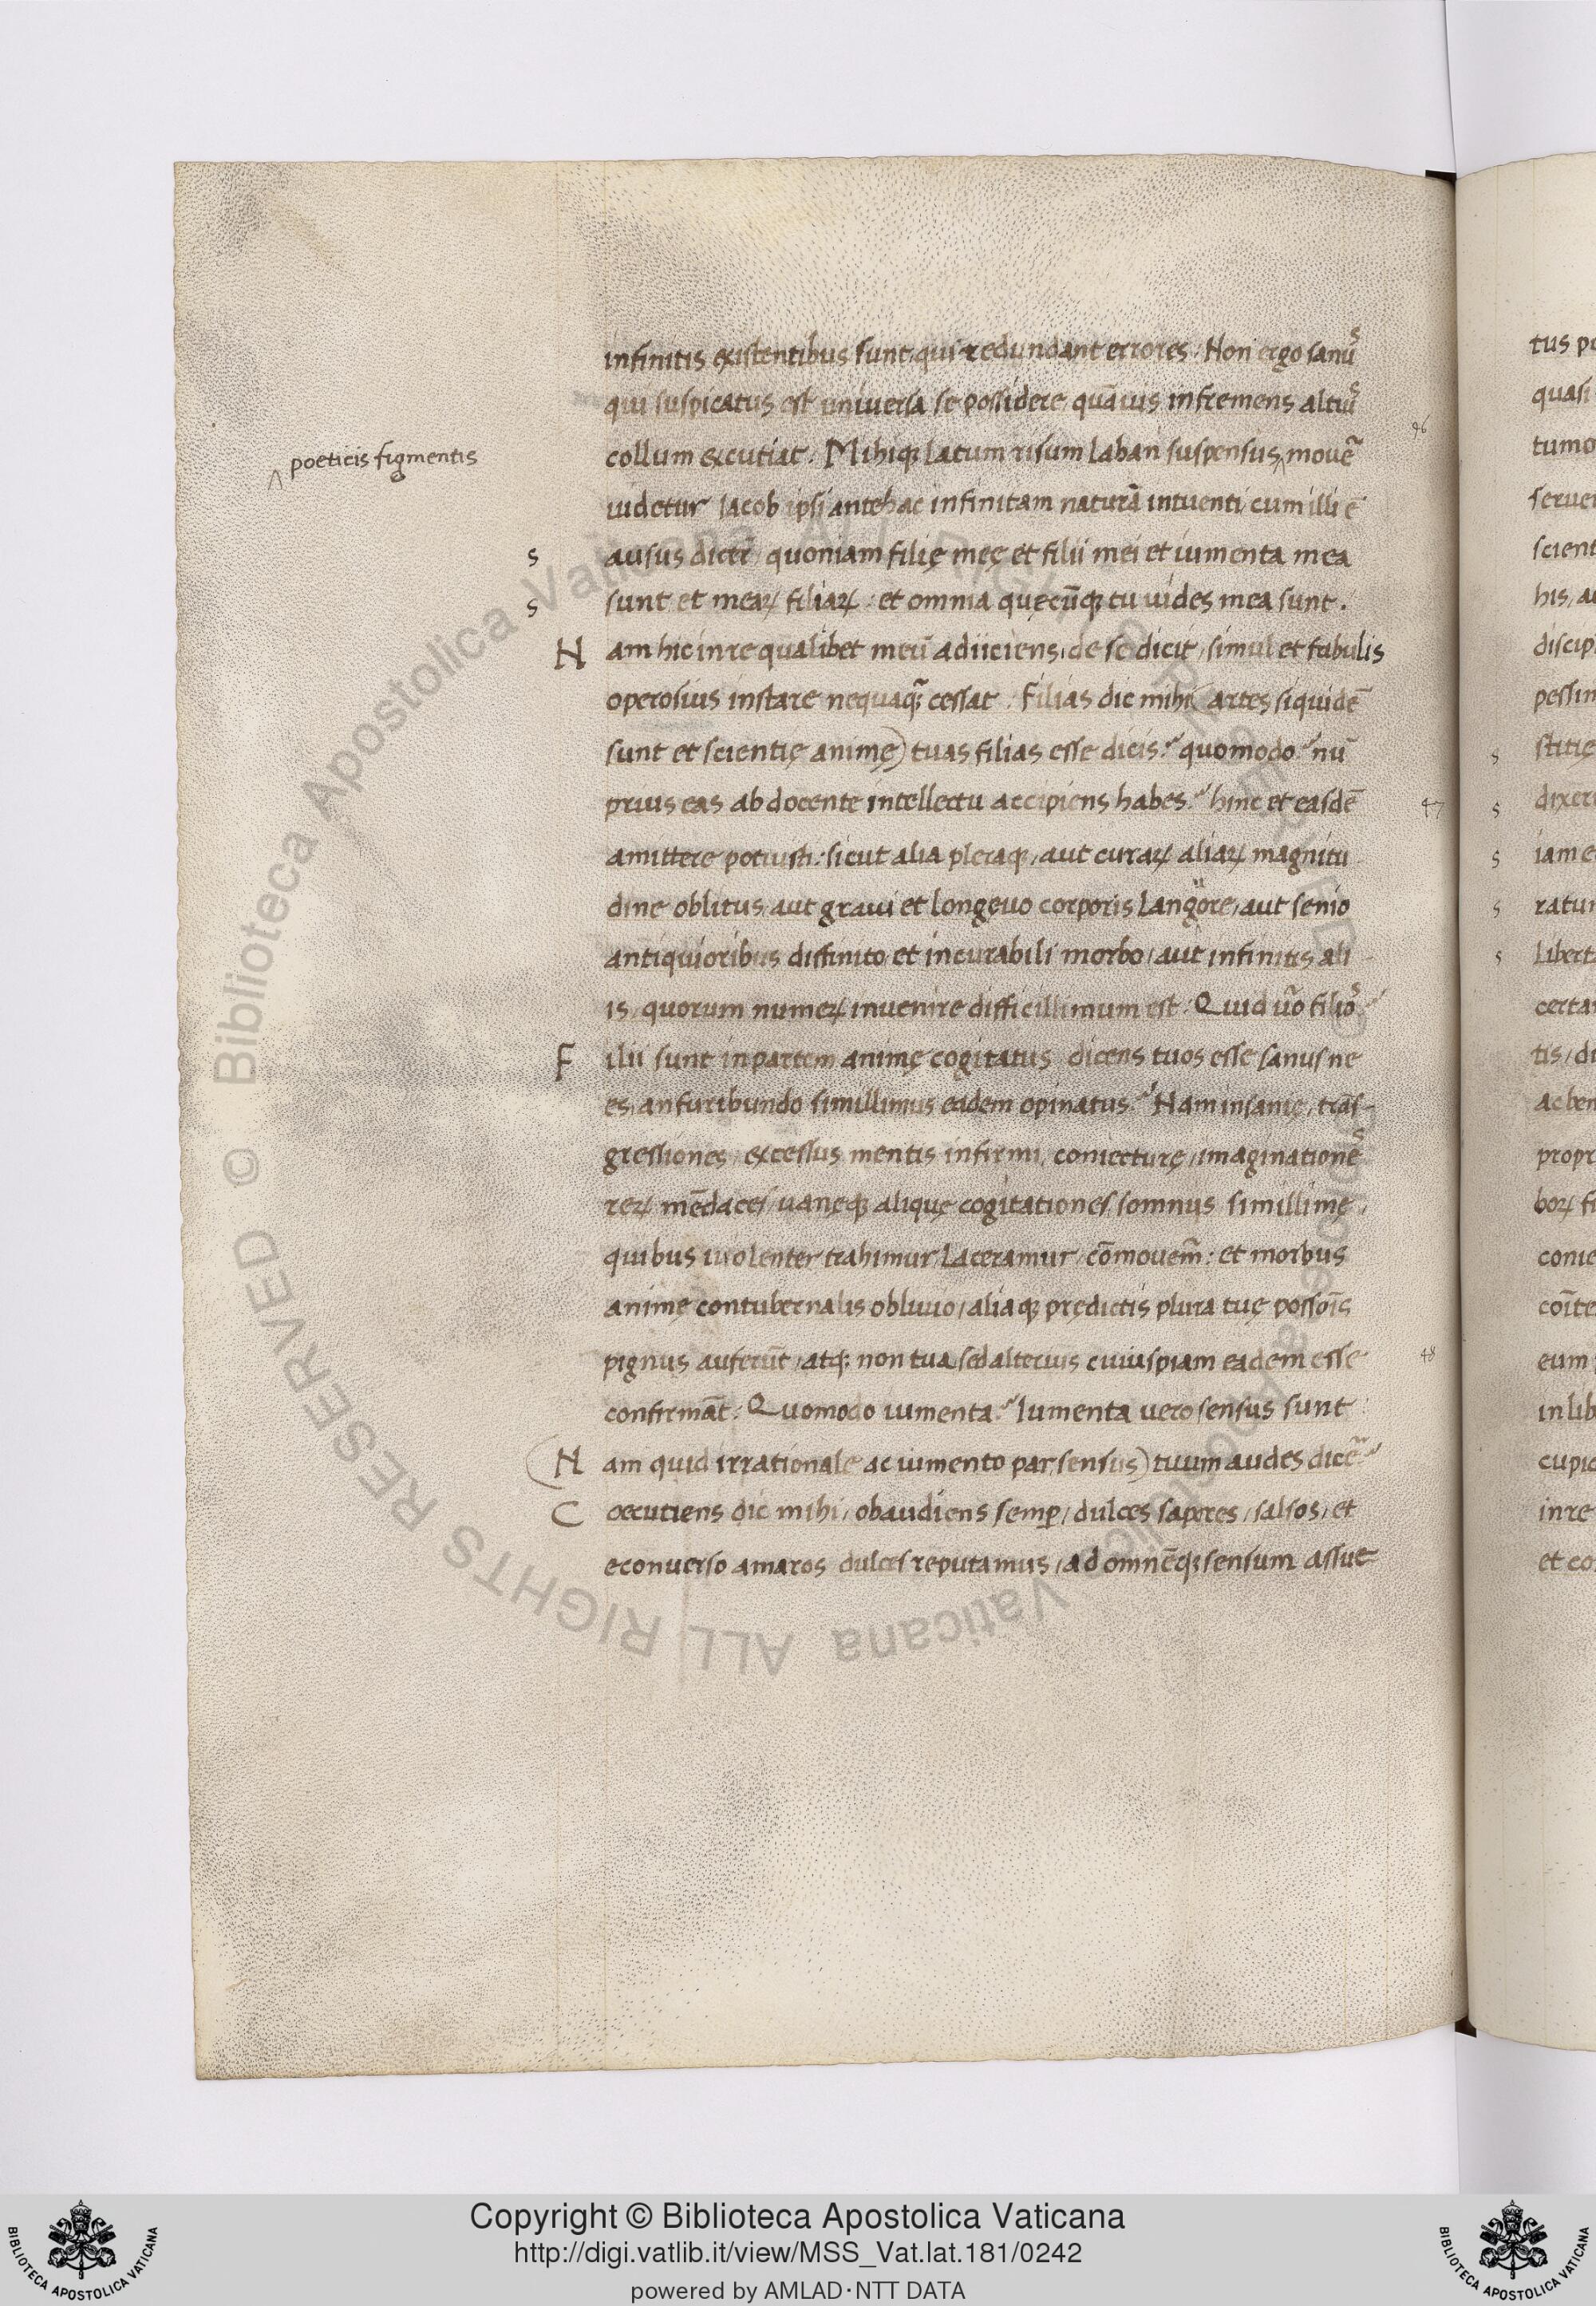 infinitis existentibus sunt, qui redundant errores. Non ergo sanuˢ
qui suspicatus est universa se possidere, quāvis infremens altiuˢ
collum excutiat. Mihiqꝫ latum risum laban suspensus ‸ movē
‸ poeticis figmentis
videtur Jacob ipsi antehac infinitam naturā intuenti, cum illi ē
s ausus dicer quoniam filię meę et filii mei et iumenta mea
s sunt et mearꝝ filiarꝝ: et omnia quęcūqꝫ tu vides mea sunt.
46
N am hic in re qualibet meū adiiciens, de se dicit, simul et fabulis
operosius instare nequaqꝫ cessat. Filias dic mihi (artes siquidē
sunt et scientię animę) tuas filias esse dicis? quomodo? nū
prius eas ab docente intellectu accipiens habes? hinc et easdē
47
amittere potuisti: sicut alia pleraqꝫ, aut curarꝝ aliarꝝ magnitu
dine oblitus, aut gravi et longęvo corporis langore, aut senio
antiquioribus diffinito et incurabili morbo, aut infinitis ali
is, quorum numerꝝ invenire difficillimum est. Quid ṽo filioˢ?
F ilii sunt in partem animę cogitatus dicens tuos esse sanus ne
es, an furibundo simillimus eadem opinatus? Nam insanię, trās-
gressiones, excessus mentis infirmi, coniecturę, imaginationēˢ
rerꝝ mēdaces, vanęqꝫ alique cogitationes somnus simillimę,
quibus violenter trahimur, laceramur, cōmovem̄: et morbus
animę contubernalis oblivio, aliaqꝫ prędictis plura tuę possoīs
pignus auferūt, atqꝫ non tua sed alterius cuiuspiam eadem esse
48
confirmāt. Quomodo iumenta? Iumenta vero sensus sunt
(N am quid irrationale ac iumento par, sensus) tuum audes dicē?
C oecutiens dic mihi, obaudiens semp, dulces sapores, salsos, et
econverso amaros dulces reputamus, ad omnēqꝫ sensum assue
tus po
quasi
tumo
servei
scient
his, au
discip
pessin
s stitię
s dixeri
s iam e
s ratui
s libert
certai
tis, di
ac ben
propr
borꝝ fi
conie
coīte
eum
in lib
cupid
in re
et co
© Biblioteca Apostolica Vaticana ALL RIGHTS RESERVED © Biblioteca Apostolica Vaticana ALL RIGHTS RESERVED
BIBLIOTECA APOSTOLICA VATICANA
Copyright © Biblioteca Apostolica Vaticana
http://digi.vatlib.it/view/MSS_Vat.lat.181/0242
powered by AMLAD·NTT DATA
BIBLIOTECA APOSTOLICA VATICANA